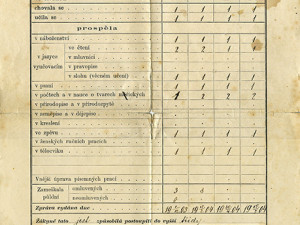 chovala se 1 1 1 1
učila se 1 1 1 1
prospěla
v náboženství 1 1 1 1
v jazyce vyučovacím
ve čtení 2 2 1 1
v mluvnici
v pravopise
v slohu (věcném učení) 1 1 1 1
v psaní 1 1 1 1
v počtech a v nauce o tvarech měřických 1 2 2 2
v přírodopise a v přírodozpytě
v zeměpise a v dějepise
v kreslení
ve zpěvu 1 1 1 1
v ženských ručních pracích
v tělocviku 1 1 1 1
Vnější úprava písemných prací
Zameškala půldní
omluvených 3 6
neomluvených
Zpráva vydána dne
Zákyně tato jest způsobilá postoupiti do vyšší třídy